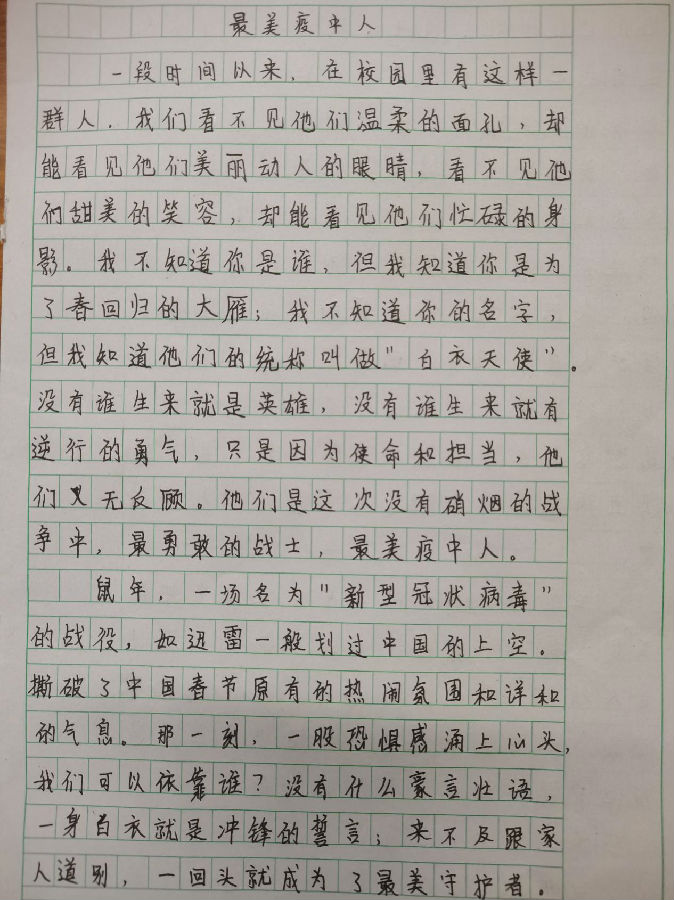 最美疫中人
一段时间以来，在校园里有这样一
群人。我们看不见他们温柔的面孔，却
能看见他们美丽动人的眼睛，看不见他
们甜美的笑容，却能看见他们忙碌的身
影。我不知道你是谁，但我知道你是为
了春回归的大雁；我不知道你的名字，
但我知道他们的统称叫做"白衣天使"。
没有谁生来就是英雄，没有谁生来就有
逆行的勇气，只是因为使命和担当，他
们义无反顾。他们是这次没有硝烟的战
争中，最勇敢的战士，最美疫中人。
鼠年，一场名为"新型冠状病毒"
的战役，如迅雷一般划过中国的上空。
撕破了中国春节原有的热闹氛围和详和
的气息。那一刻，一股恐惧感涌上心头，
我们可以依靠谁？没有什么豪言壮语，
一身白衣就是冲锋的誓言；来不及跟家
人道别，一回头就成为了最美守护者。